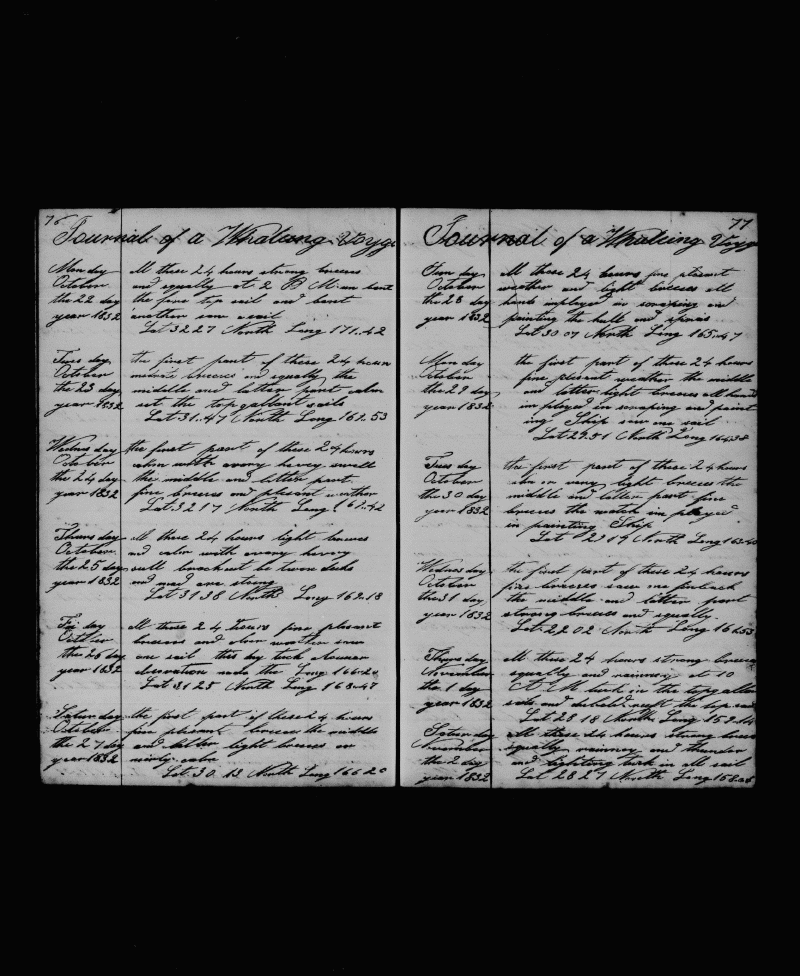 76
Journal of a Whaleing Voyge
Monday All these 24 hours strong breeses
October and squally at 2 P M
the 22 day the fore top sail and bent
year 1832 another saw a sail
Lat 32 27 North Long 171..42
Tues day the first part of these 24 hours
October breeses and squally the
the 23 day middle and latter part calm
year 1832 set the topgallant sails
Lat 31..47 North Long 169..53
Wednes day the first part of these 24 hours
October calm with avery hevey swell
the 24 day the middle and latter part
year 1832 fine breeses and plesent weather
Lat 32 17 North Long
Thursday all these 24 hours light breeses
October and calm with avery hevey
the 25 day swell twene decks
year 1832 and
Lat 31 38 North Long 169..18
Fri day All these 24 hours fine plesant
October breeses and clear weather saw
the 26 day one sail this day took
year 1832 made the Long 166..20
Lat 31 25 North Long 168..47
Satur day the first part of these 24 hours
October fine plesant breeses the middle
the 27 day and latter light breeses or
year 1832 ninly calm
Lat 30..13 North Long 166 20
77
Journal of a Whaleing Voyge
Sun day All these 24 hours fine plesant
October weather and light breeses all
the 28 day hands imployed in scraping and
year 1832 painting the and spars
Lat 30 07 North Long 165..47
Mon day the first part of these 24 hours
October fine plesent weather the middle
the 29 day and latter light breeses all hands
year 1832 imployed in scraping and paint
ing Ship saw one sail
Lat 29..51 North Long 164..38
Tues day the first part of these 24 hours
October calm or very light breeses the
the 30 day middle and latter part fine
year 1832 breeses the watch imployed
in painting Ship
Lat 29 14 North Long
Wednes day the first part of these 24 hours
October fine breeses saw one finback
the 31 day the middle and latter part
year 1832 strong breeses and squally
Lat North Long
Thurs day All these 24 hours strong breeses
November squally and rainney at 10
the 1 day A M took in the topgallant
year 1832 sails and reeft the top sails
Lat 28 18 North Long
Satur day All these 24 hours strong breeses
November squally rainney and thunder
the 2 day and lightning took in all sail
year 1832 Lat 28 27 North Long